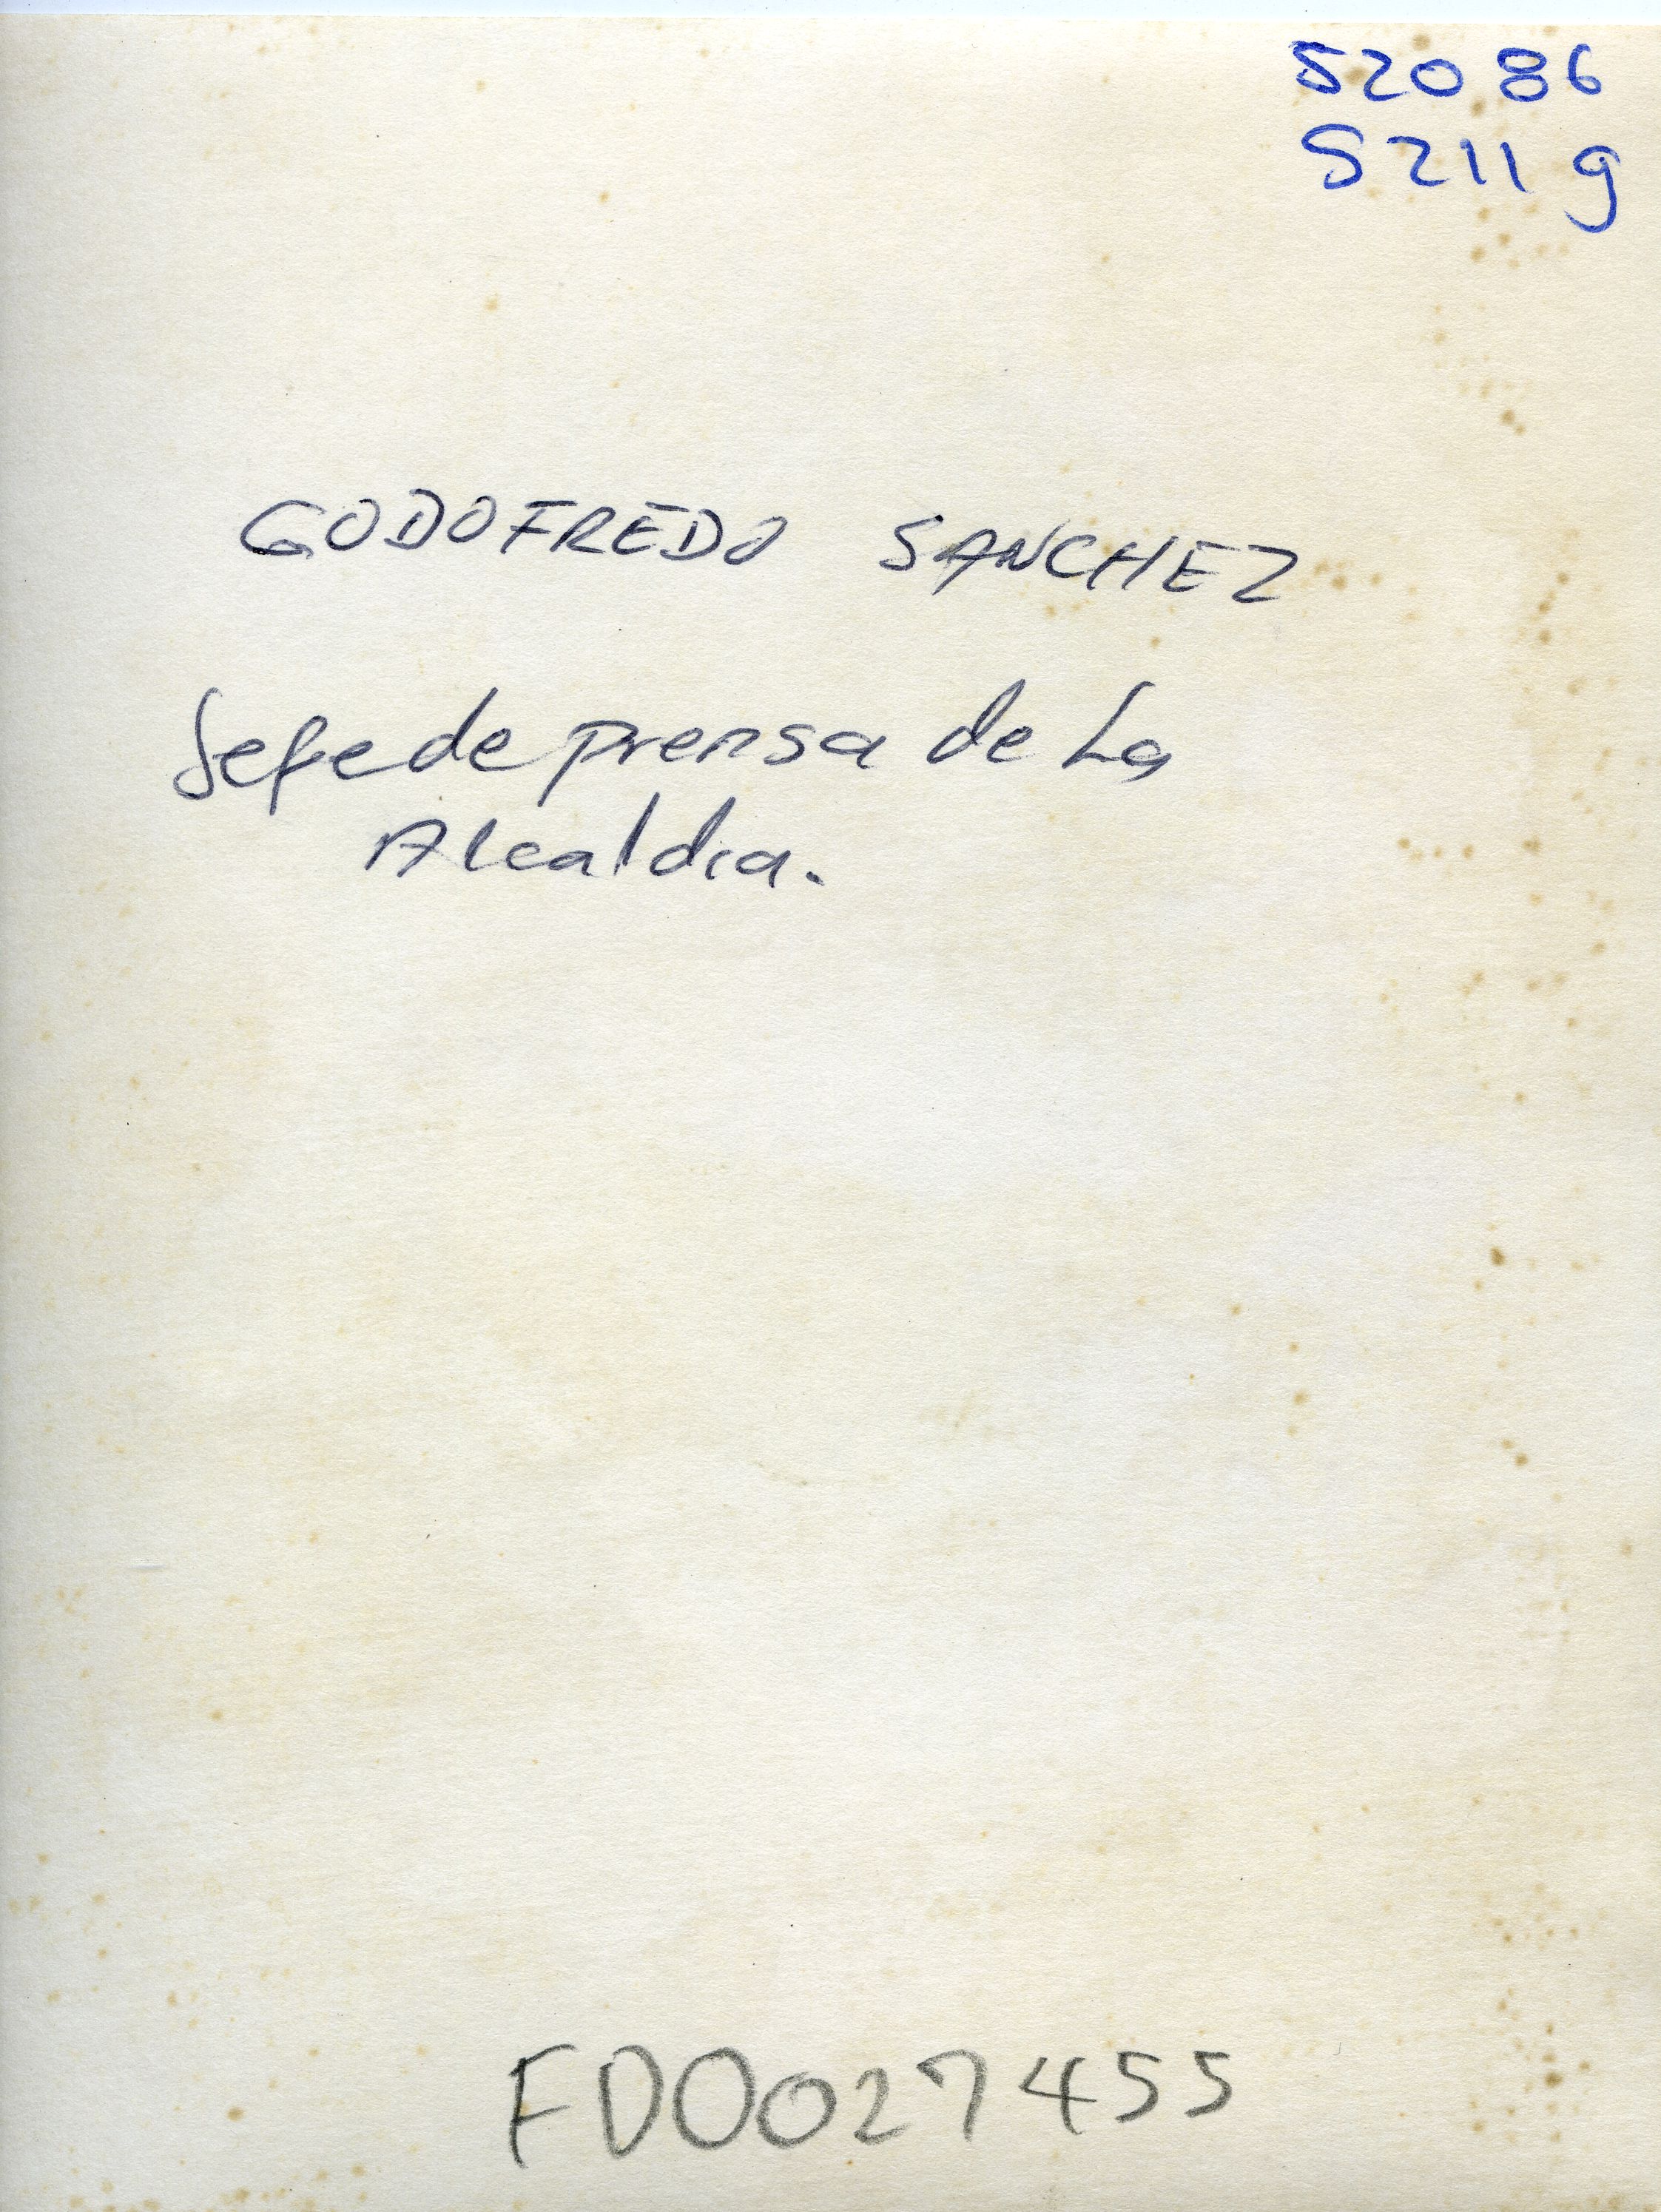 52086
S211g
GODOFREDO SANCHEZ
Jefe de prensa de La
Alcaldia.
FD0027455